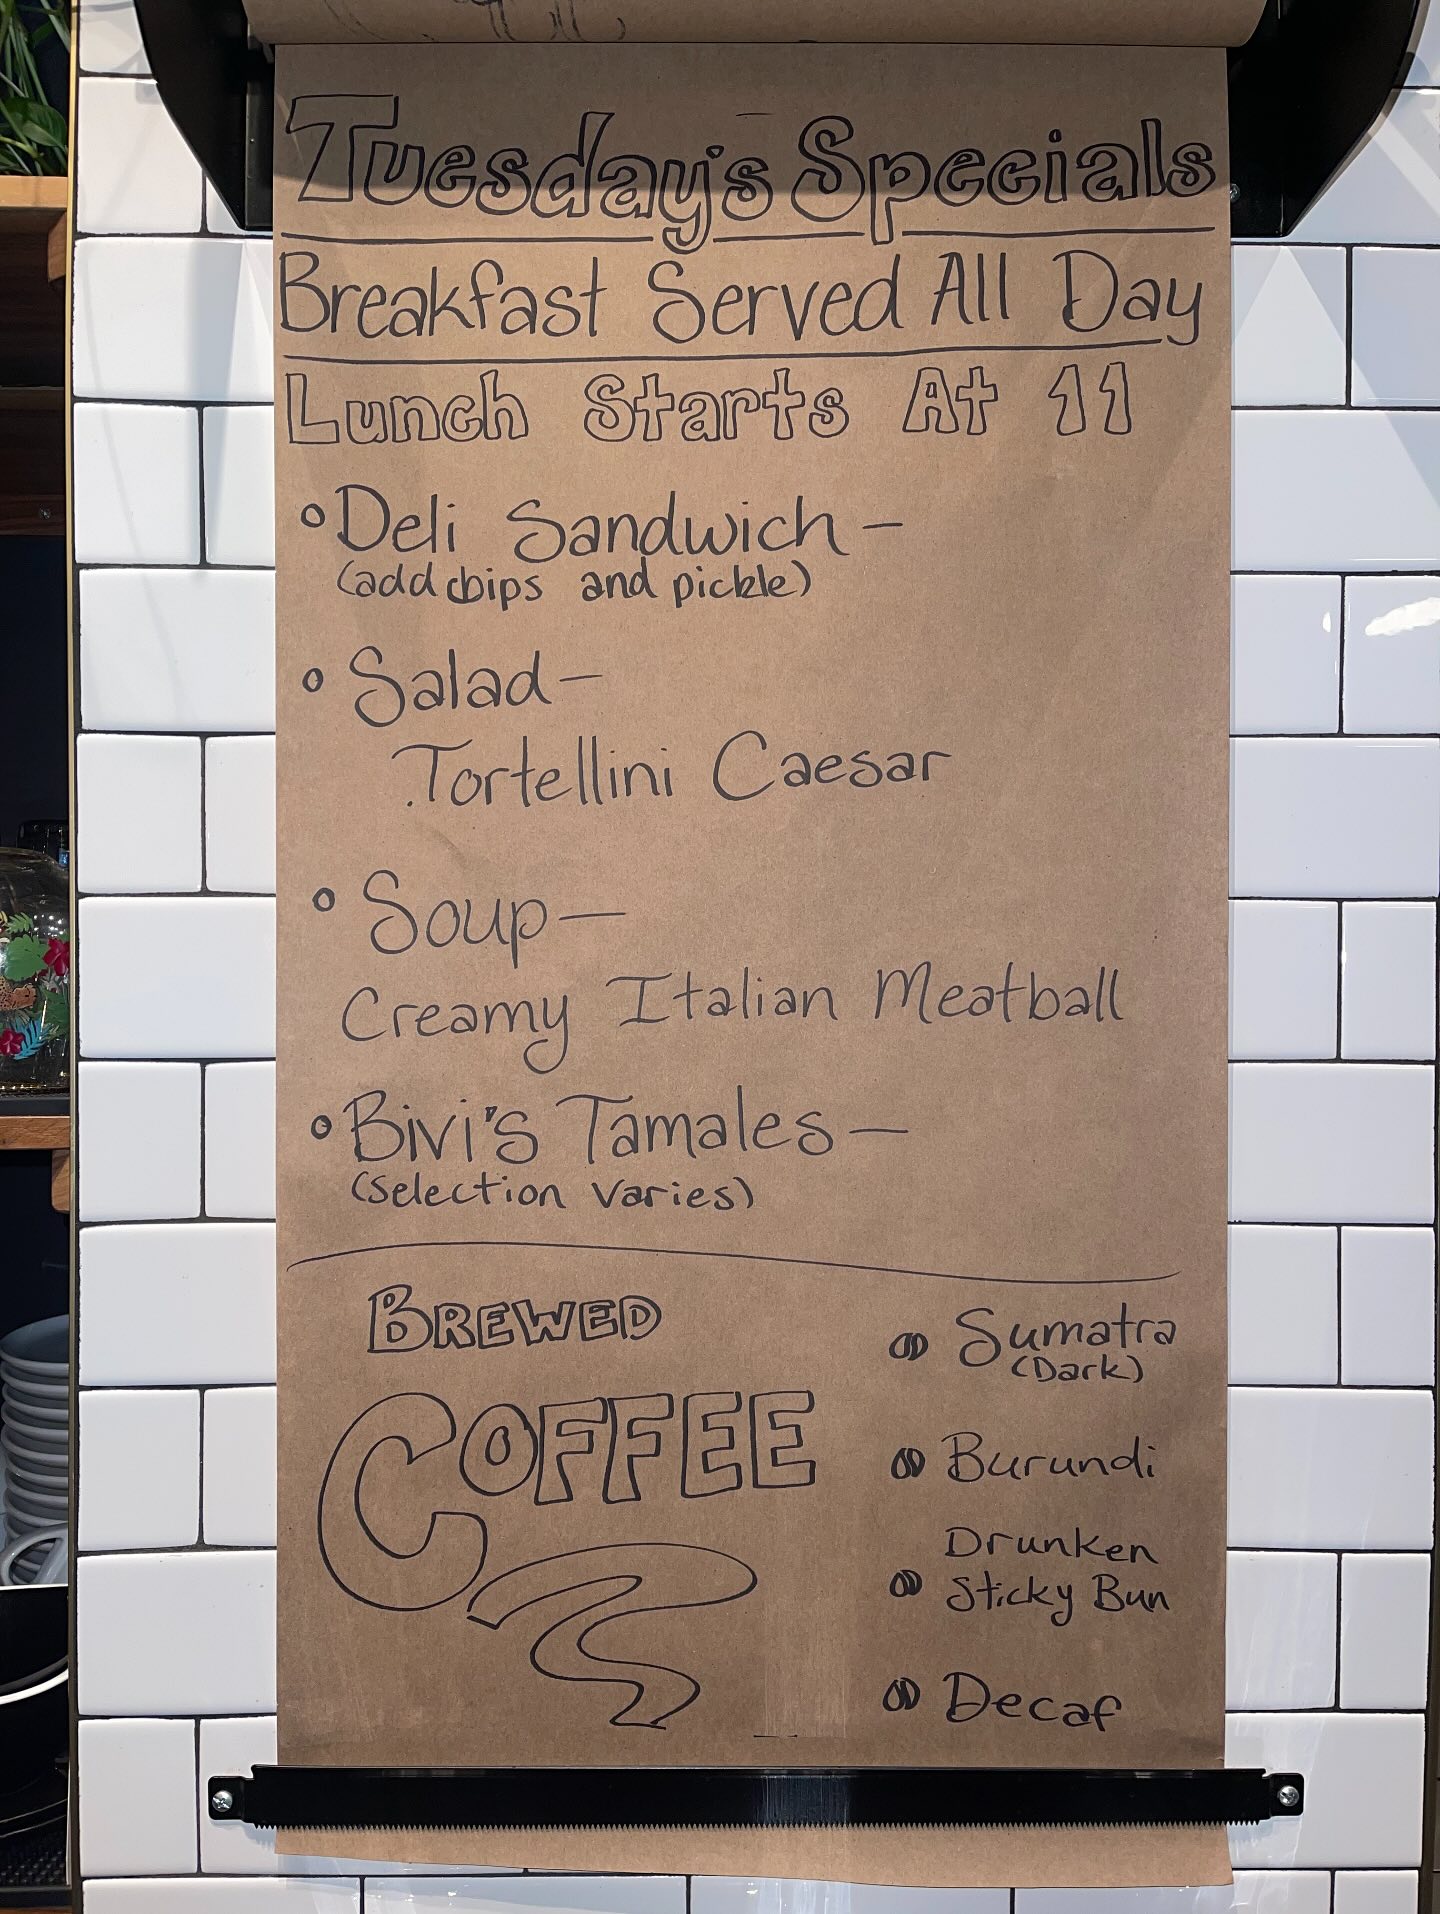 Tuesday's Specials
Breakfast Served All Day
Lunch Starts At 11
Deli Sandwich –
(add chips and pickle)
Salad –
Tortellini Caesar
Soup –
Creamy Italian Meatball
Bivi's Tamales –
(selection varies)
BREWED
COFFEE
Sumatra
(Dark)
Burundi
Drunken
Sticky Bun
Decaf